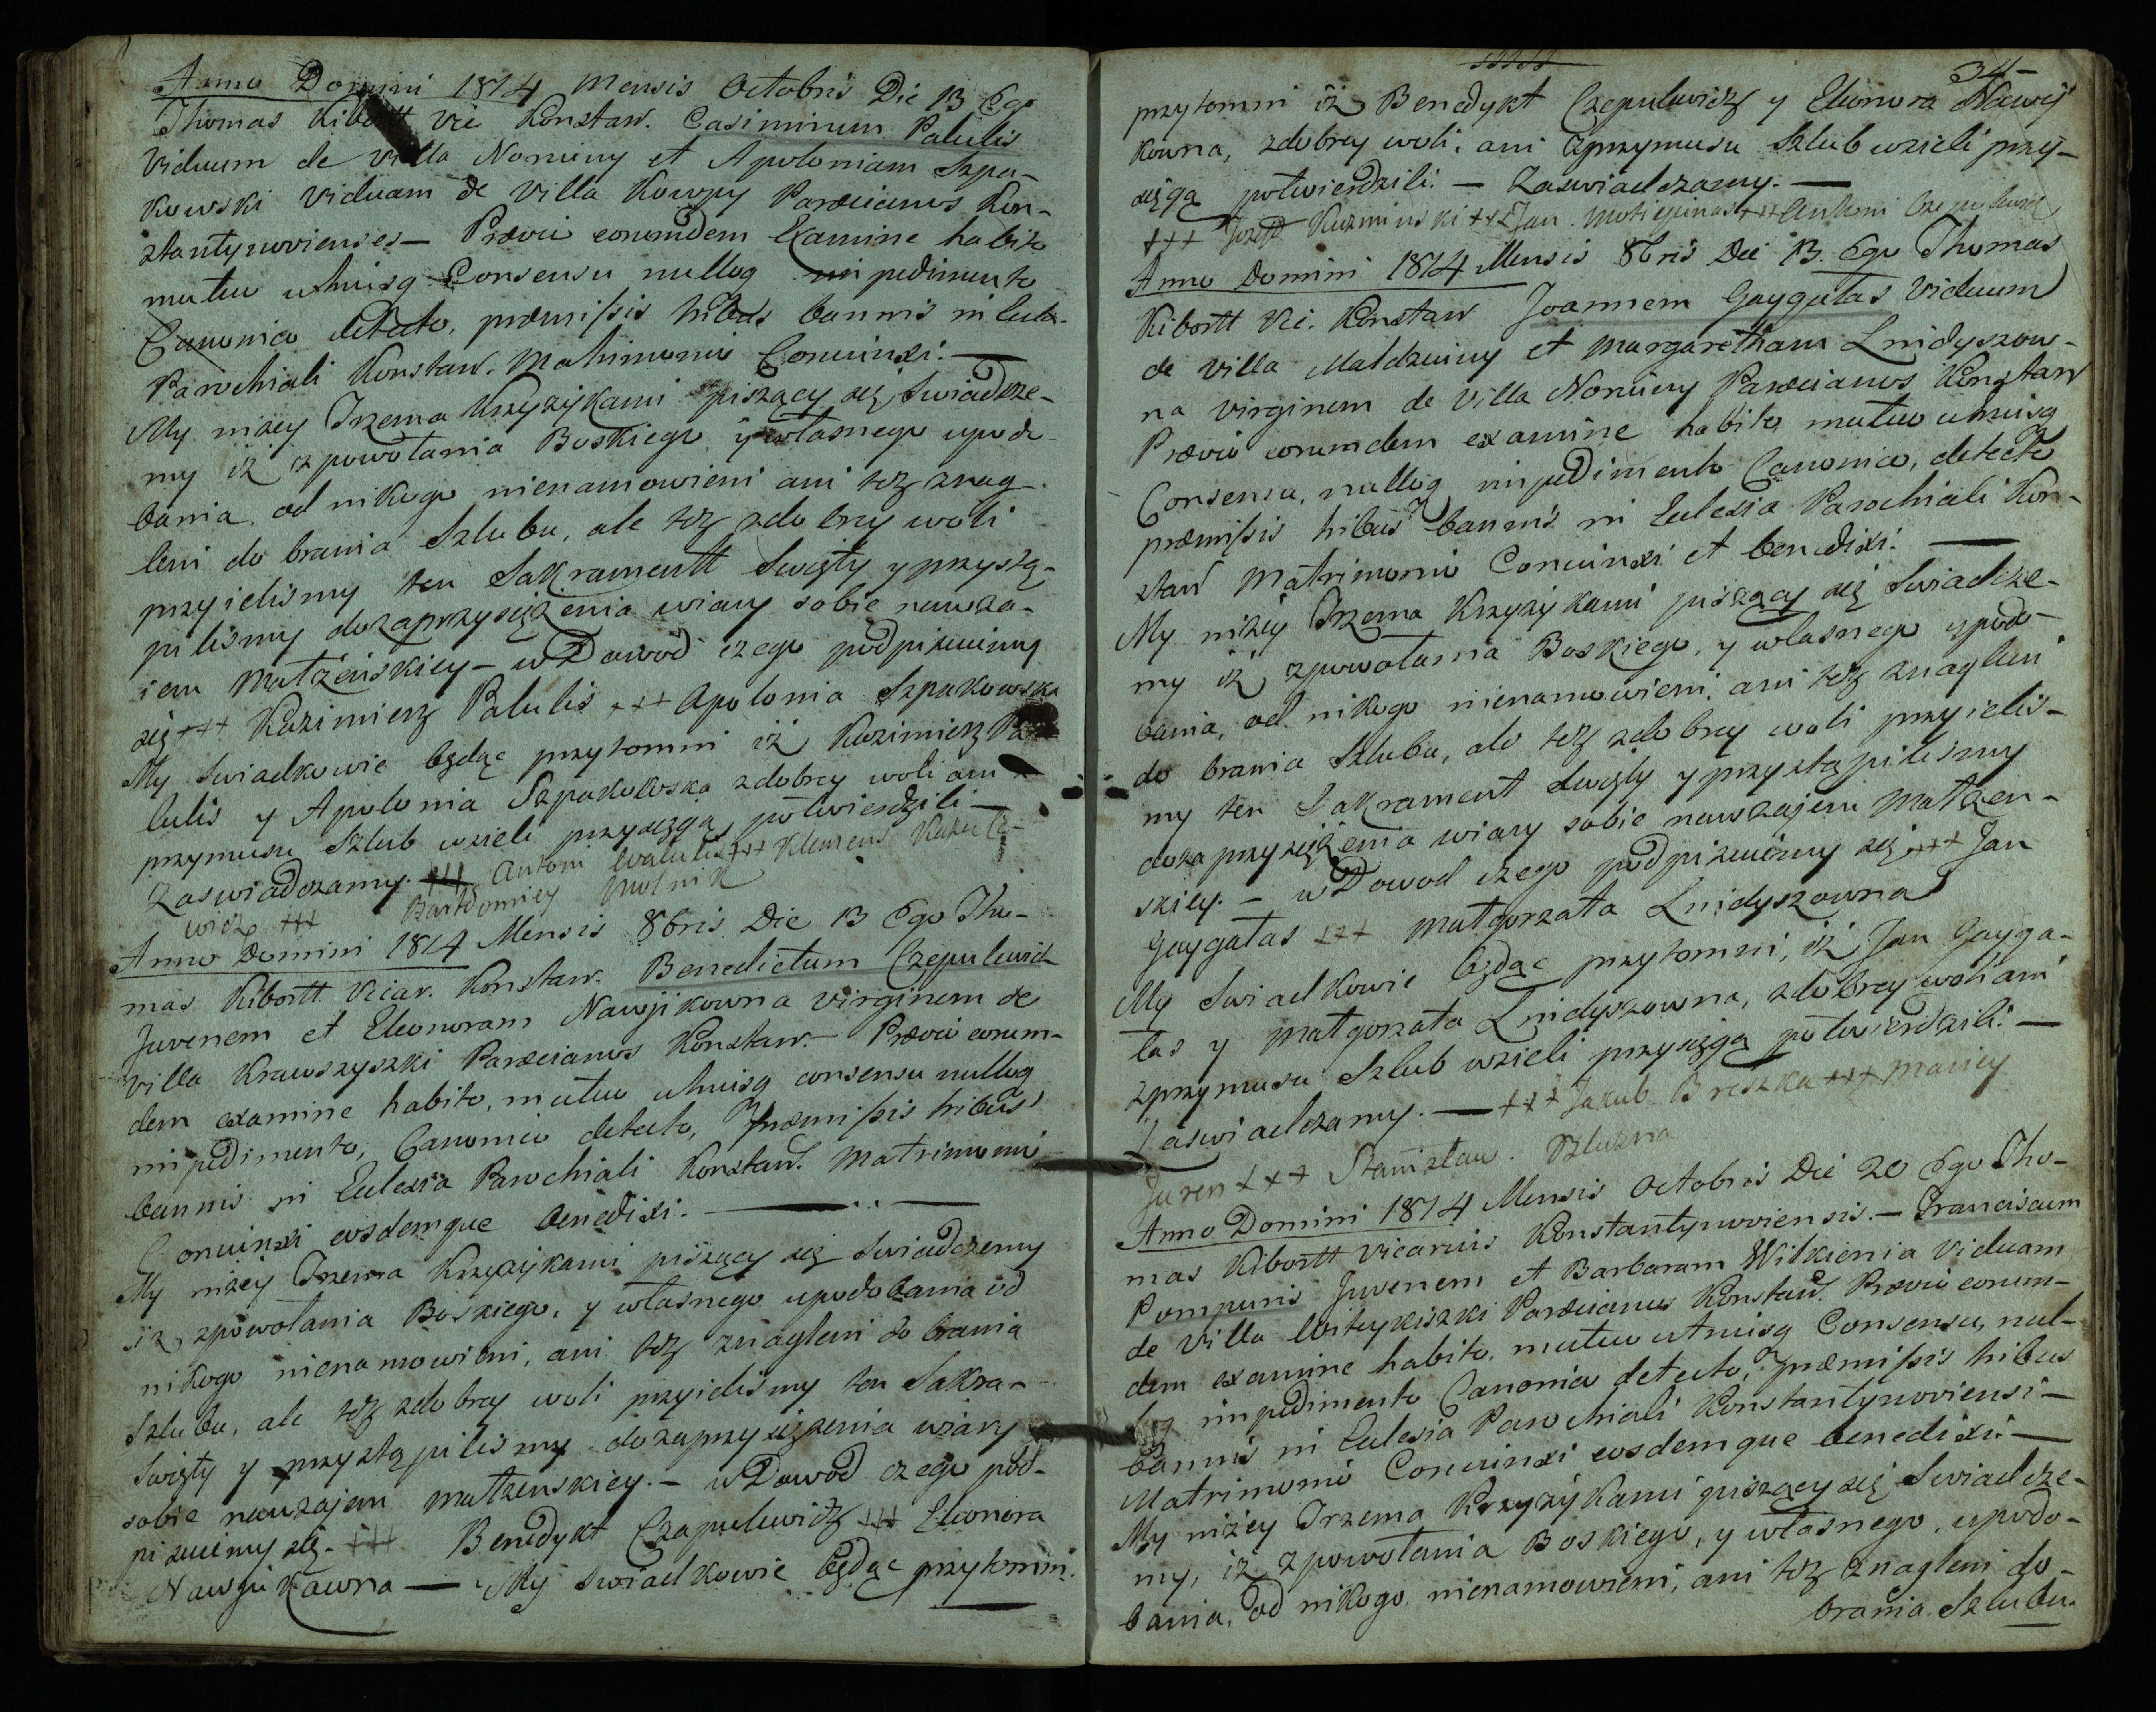 Anno Domini 1814 Mensis Octobris Die 13 Ego
Thomas Kibortt Vic Konstaw. Casimirum Palulis
Viduum de villa Noniuny et Apoloniam Szpa-
kowski Viduam de Villa Kowpy Parœcianos Kon-
stantynovienses — Prœvio eorumdem Examine habito
mutuo utriusq Consensu nulloq impedimento
Canonico detecto, prœmissis tribus bannis in Eccla.
Parochiali Konstaw. Matrimonio Coniunxi. —
My nizey Trzema Krzyżykami piszący się Swiadcze-
my iż zpowołania Boskiego y własnego upodo-
bania od nikogo nienamowieni ani też znag-
leni do brania Szlubu, ale też zdobrey woli
przyieliśmy ten Sakramentt Swięty y przystą-
piliśmy dozaprzysiężenia wiary sobie nawza-
iem Małżeńskiey — w Dowod czego podpisuiemy
się +++ Kazimierz Palulis +++ Apolonia Szpakowska
My Swiadkowie będąc przytomni iż Kazimierz Pa-
lulis y Apolonia Szpakowska zdobrey woli ani z
przymusu Szlub wzieli przysięgą potwierdzili —
Zaswiadczamy. +++ Antoni Walulis +++ Klemens
wicz +++ Bartłomiey Molnik
Anno Domini 1814 Mensis 8bris Die 13 Ego Tho-
mas Kibortt Vicar. Konstaw. Benedictum Czepulewicz
Juvenem et Eleonoram Nawjikowna virginem de
villa Krawszyszki Parœcianos Konstaw. — Prœvio eorum-
dem examine habito, mutuo utriusq consensu nulloq
impedimento, Canonico detecto, Prœmissis tribus
bannis in Eulesia Parochiali Konstaw. Matrimonio
Coniunxi eosdemque benedixi. —
My niżey Trzema Krzyżykami piszący się Swiadczemy
iż zpowołania Boskiego, y własnego upodobania od
nikogo nienamowieni, ani też znagleni do brania
Szlubu, ale też zdobrey woli przyieliśmy ten Sakra-
Swięty y przystąpiliśmy dozaprzysiężenia wiary
sobie nawzajem małżenskiey. — w Dowod czego pod-
pisuiemy się. +++ Benedykt Czapulewicz +++ Eleonora
Nawjikowna — My Swiadkowie będąc przytomni.
34
przytomni iż Benedykt Czepulewicz y Eleonora Nawij
kowna, zdobrey woli, ani zprzymusu Szlub wzieli przy-
sięgą potwierdzili. — Zaswiadczamy. —
+++ Jozeff Kuzminski +++ Jan Motiejunas +++ Antoni Czepulewicz
Anno Domini 1814 Mensis 8bris Die 13. Ego Thomas
Kibortt Vic. Konstaw Joannem Gaygalas Viduum
de villa Maldziuny et Margaretham Lnidyszow-
na virginem de Villa Noniuny Parœcianos Konstaw
Prœvio eorumdem examine habito, mutuo utriusq
Consensu, nulloq impedimento Canonico, detecto
prœmissis tribus bannis in Eulesia Parochiali Kon-
staw Matrimonio Coniunxi et benedixi. —
My niżey Trzema Krzyżykami piszący się Swiadcze-
my iż zpowołania Boskiego, y własnego upodo-
bania, od nikogo nienamowieni, ani też znagleni
do brania Szlubu, ale też zdobrey woli przyieliś-
my ten Sakrament Swięty y przystąpiliśmy
dozaprzysiężenia wiary sobie nawzajem Małżen-
skiey. — w Dowod czego podpisuiemy się +++ Jan
Gaygałas +++ Małgorzata Lnidyszowna
My Swiadkowie będąc przytomni, iż Jan Gayga-
łas y Małgorzata Lnidyszowna, zdobrey woli ani
zprzymusu Szlub wzieli przysięgą potwierdzili. —
Zaswiadczamy. — +++ Jakub Breszka +++ Maciey
Juren +++ Stanisław
Anno Domini 1814 Mensis Octobris Die 20 Ego Tho-
mas Kibortt Vicarius Konstantynoviensis. — Franciscum
Pompuris Juvenem et Barbaram Wilkienia Viduam
de Villa Witeykiszki Parœcianos Konstaw. Prœvio eorum-
dem examine habito, mutuo utriusq Consensu, nul-
loq impedimento Canonico detecto, Prœmissis tribus
bannis in Eulesia Parochiali Konstantynoviensi —
Matrimonio Coniunxi eosdemque benedixi. —
My niżey Trzema Krzyżykami piszący się Swiadcze-
my, iż zpowołania Boskiego, y własnego, upodo-
bania, od nikogo, nienamowieni, ani też znagleni do-
brania Szlubu.